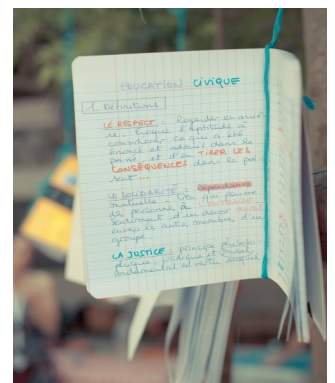 EDUCATION CIVIQUE
1. Définitions
LE RESPECT : Regarder en arriè
re. Evoque l'aptitude à
considérer ce qui a été
énoncé et admis dans le
passé, et d'en TIRER LES
CONSÉQUENCES dans le pré-
sent.
LA SOLIDARITÉ : Dépendance
mutuelle. Lien qui
de personnes à
Sentiment d'un devoir moral
envers les autres membres d'un
groupe.
LA JUSTICE : principe philoso
phique, juridique et moral
fondamental